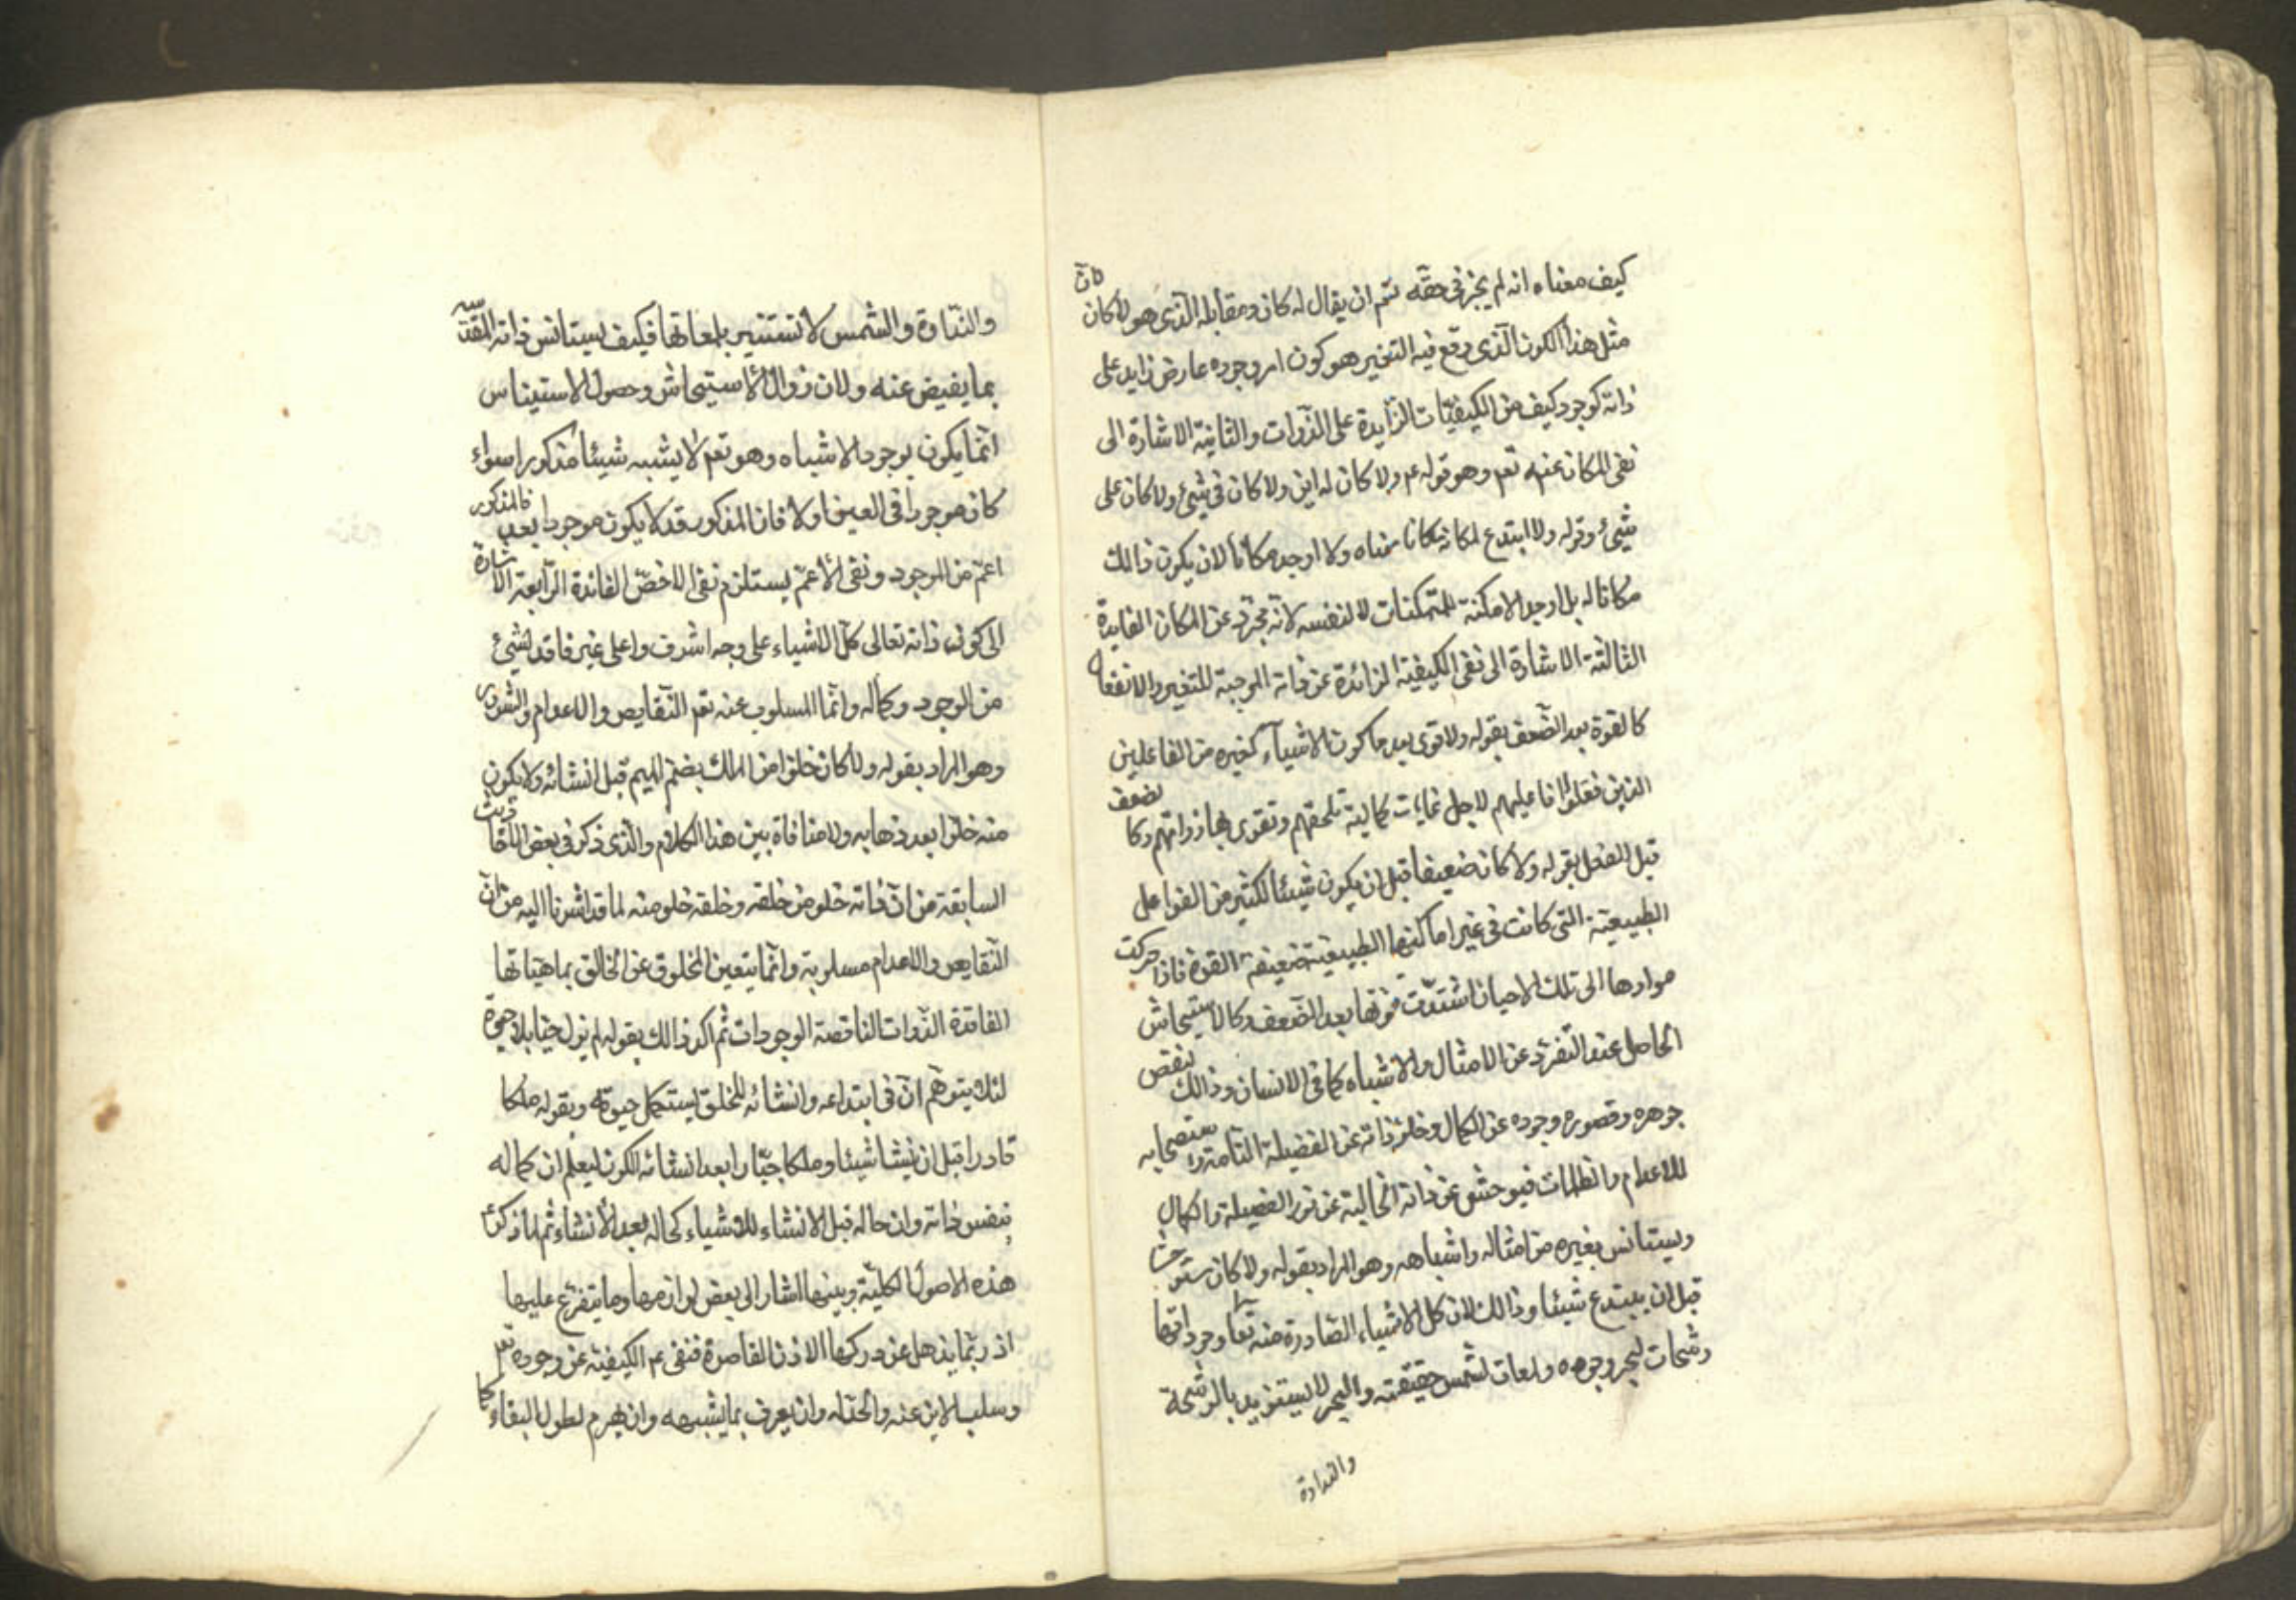 كيف معناه انه لم يجز في حقه تعم ان يقال له كان ومقابله الذي هو لا كان كان
مثل هذا الكون الذي وقع فيه التغير هو كون امر وجوده عارض زايد على
ذاته كوجود كيف من الكيفيّات الزّايدة على الذوات والثانية الاشارة الى
نفى المكان عنه تعم وهو قوله عم ولا كان له اين ولا كان في شيئ ولا كان على
شيئ وقوله ولا ابتدع لمكانه مكانا معناه ولا اوجد مكانا لان يكون ذالك
مكانا له بل اوجد الامكنة للمتمكنات لا لنفسه لانّه مجرّد عن المكان الفايدة
الثالثة الاشارة الى نفى الكيفية الزائدة عن ذاته الموجبة للتغير والانفعال
كالقوة بعد الضّعف بقوله ولا قوى بعد ما كون الاشياء كغيره من الفاعلين
الذين فعلوا افاعيلهم لاجل غايات كمالية تلحقهم وتقوى بها ذواتهم وكالضعف
قبل الفعل بقوله ولا كان ضعيفا قبل ان يكون شيئا لكثير من الفواعل
الطبيعية التي كانت في غير اماكنها الطبيعية ضعيفة القوة فاذا حركت
موادها الى تلك الاحيان اشتدّت قوتها بعد الضّعف وكالاستيحاش
الحاصل عند التّفرّد عن الامثال والاشباه كما في الانسان وذالك لنقص
جوهره وقصور وجوده عن الكمال وخلو ذاته عن الفضيلة التامة واستصحابه
للاعدام والظلمات فيوحش عن ذاته الخالية عن نور الفضيلة والكمال
ويستانس بغيره من امثاله واشباهه وهو المراد بقوله ولا كان مستوحشا
قبل ان يبتدع شيئا وذالك لان كل الاشياء الصّادرة منه تعالى وجوداتها
رشحات لبحر وجوده ولمعات لشمس حقيقته والبحر لا يستزيد بالرشحة
والنداوة
والنّداوة والشمس لا تستنير بلمعاتها فكيف يستانس ذاته المقدّسة
بما يفيض عنه ولان زوال الاستيحاش وحصول الاستيناس
انّما يكون بوجود الاشباه وهو تعم لا يشبه شيئا مذكورا سواء
كان موجودا في العين اولا فان المذكور قد لا يكون موجودا بعد فالمذكور
اعمّ من الموجود ونفى الأعمّ يستلزم نفى الاخصّ الفائدة الرّابعة الاشارة
الى كون ذاته تعالى كلّ الاشياء على وجه اشرف واعلى غير فاقد لشيئ
من الوجود وكماله وانّما المسلوب عنه تعم النّقايص والاعدام والشرور
وهو المراد بقوله ولا كان خلوا من الملك بضمّ الميم قبل انشائه ولا يكون
منه خلوا بعد ذهابه ولا منافاة بين هذا الكلام والذي ذكر في بعض الاحاديث
السابقة من انّ ذاته خلو من خلقه وخلقه خلو منه لما قد اشرنا اليه من انّ
النّقايص والاعدام مسلوبة وانّما يتعين المخلوق عن الخالق بماهيّاتها
الفاقدة الذّوات الناقصة الوجودات ثم اكد ذالك بقوله لم يزل حيّا بلا حيوة
لئلا يتوهّم انّ في ابتداعه وانشائه للخلق يستكمل حيوته وبقوله ملكا
قادرا قبل ان ينشا شيئا وملكا جبّارا بعد انشائه للكون ليعلم ان كماله
بنفس ذاته وان حاله قبل الانشاء للاشياء كحاله بعد الأنشاء ثم لما ذكر
هذه الاصول الكلية وبينها اشار الى بعض لوازمها وما يتفرع عليها
اذ ربّما يذهل عن دركها الاذن القاصرة فنفى عم الكيفيّة عن وجوده تعم
وسلب الاين عنه والحدّ له وان يعرف بما يشبهه وان يهرم لطول البقاء كما